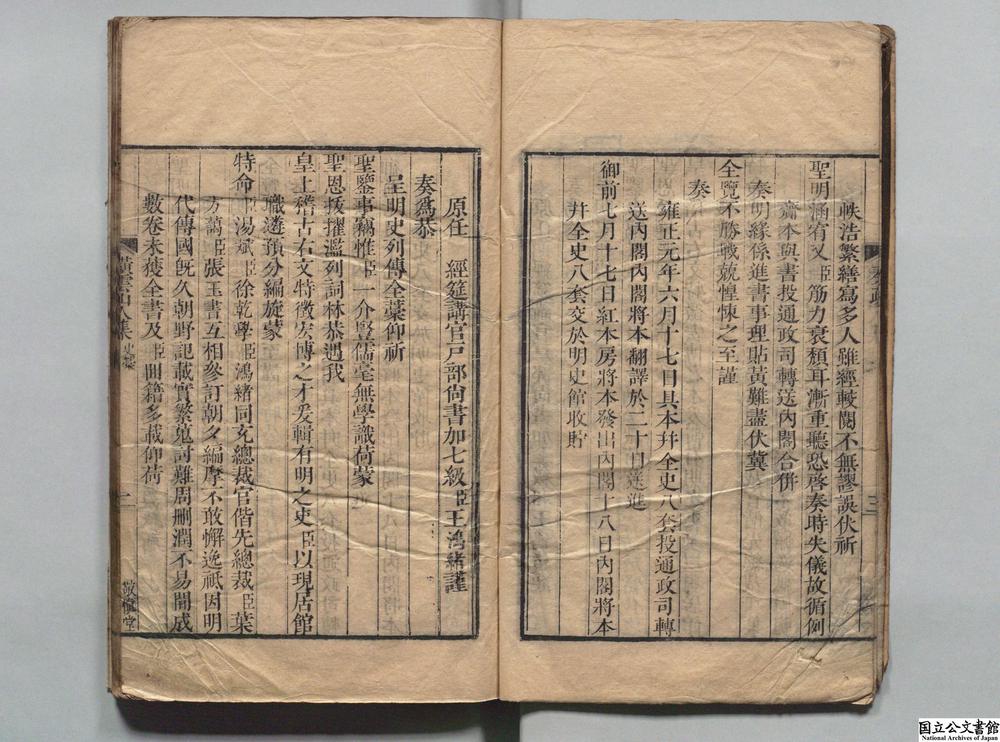 帙浩繁繕寫多人雖經較閱不無謬誤伏祈
聖明涵宥又臣筋力衰頹耳漸重聽恐啓奏時失儀故循例
齎本與書投通政司轉送內閣合併
奏明緣係進書事理貼黃難盡伏冀
全覽不勝戰兢惶悚之至謹
奏
雍正元年六月十七日具本幷全史八套投通政司轉
送內閣內閣將本翻譯於二十日送進
御前七月十七日紅本房將本發出內閣十八日內閣將本
幷全史八套交於明史館收貯
奏疏
三
原任 經筵講官戶部尚書加七級臣王鴻緒謹
奏爲恭
呈明史列傳全藁仰祈
聖鑒事竊惟臣一介豎儒毫無學識荷蒙
聖恩拔擢濫列詞林恭遇我
皇上稽古右文特徵宏博之才爰輯有明之史臣以現居館
職遴預分編旋蒙
特命臣湯斌臣徐乾學臣鴻緒同充總裁官偕先總裁臣葉
方藹臣張玉書互相參訂朝夕編摩不敢懈逸祗因明
代傳國旣久朝野記載實繁蒐討難周刪潤不易開成
數卷未獲全書及臣回籍多載仰荷
橫雲山人集 史藁
一
敬愼堂
国立公文書館
National Archives of Japan